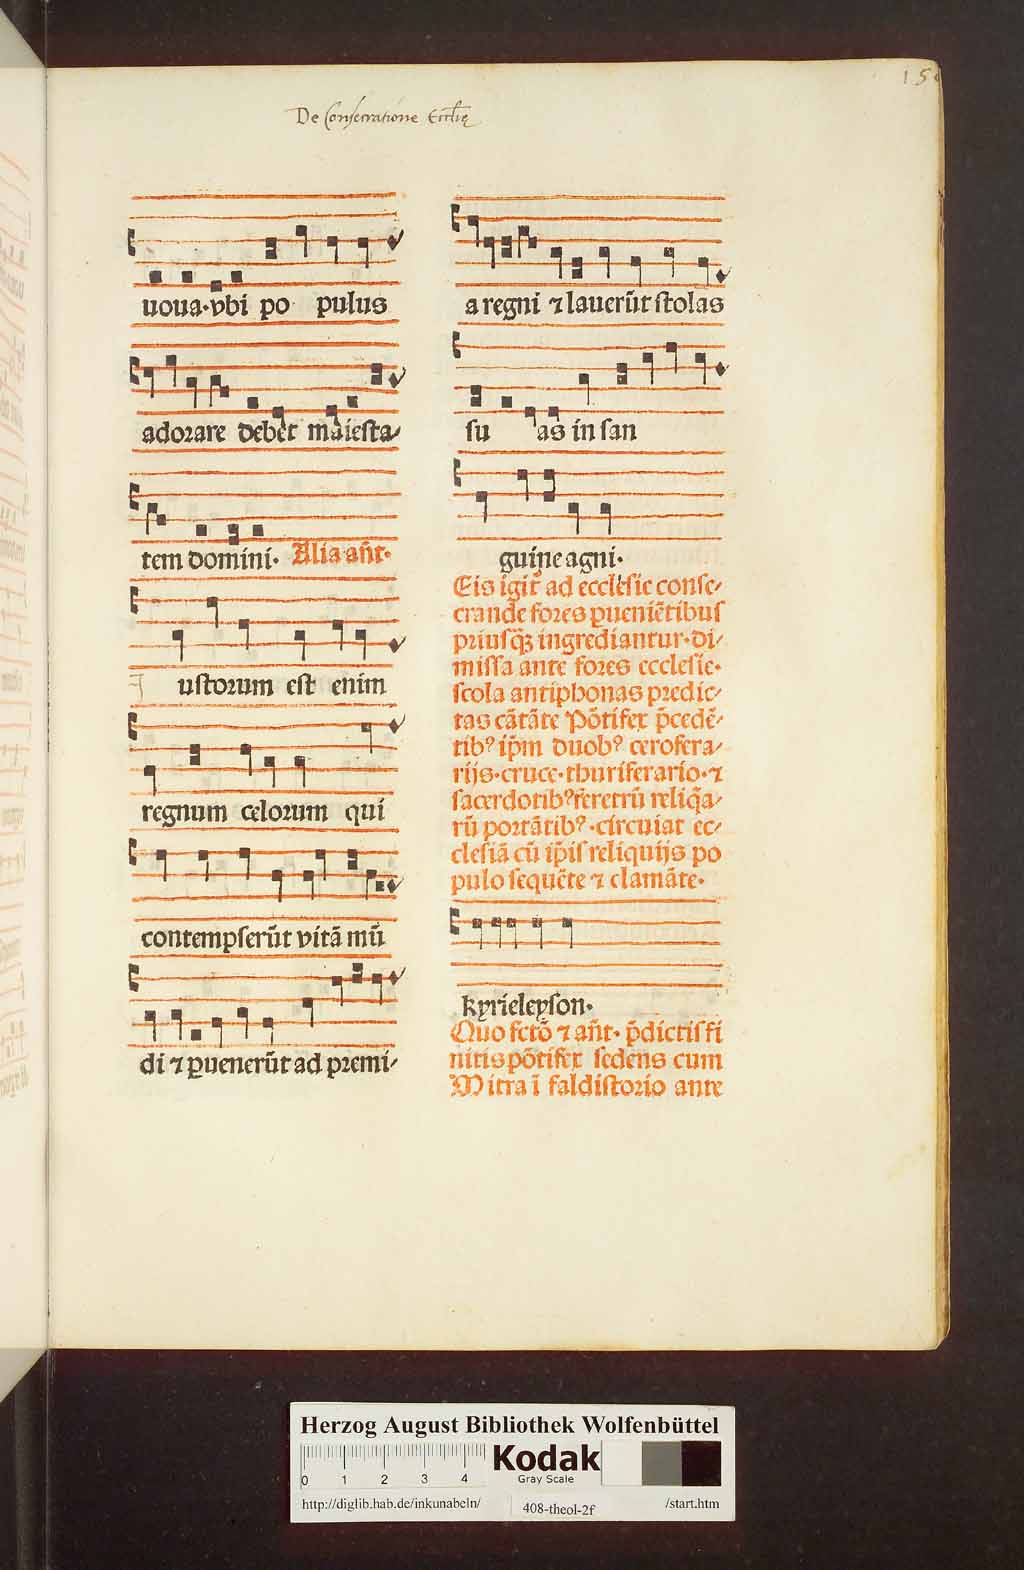 De Consecratione Eccl̄ię
15
uoua·vbi po pulus
adorare debet maiesta/
tem domini· Alia añt·
ustorum est enim
regnum celorum qui
contempserūt vitā mū
di ⁊ ꝑuenerūt ad premi/
a regni ⁊ lauerūt stolas
su as in san
guine agni·
Eis igit᷑ ad ecclesie conse/
crande fores ꝑueniētibus
priusqꝫ ingrediantur·di/
missa ante fores ecclesie·
scola antiphonas predic/
tas cātāte Pōtifex p̄cedē/
tibꝰ ip̄m duobꝰ cerofera/
rijs·cruce·thuriferario·⁊
sacerdotibꝰ feretrū reliq̄a/
rū portātibꝰ·circuiat ec/
clesiā cū ip̄is reliquijs po
pulo sequēte ⁊ clamāte·
kyrieleyson·
Quo fctō ⁊ añt· p̄dictis fi
nitis pōtifex sedens cum
Mitra ī faldistorio ante
Herzog August Bibliothek Wolfenbüttel
0 1 2 3 4
Kodak
Gray Scale
http://diglib.hab.de/inkunabeln/ 408-theol-2f /start.htm